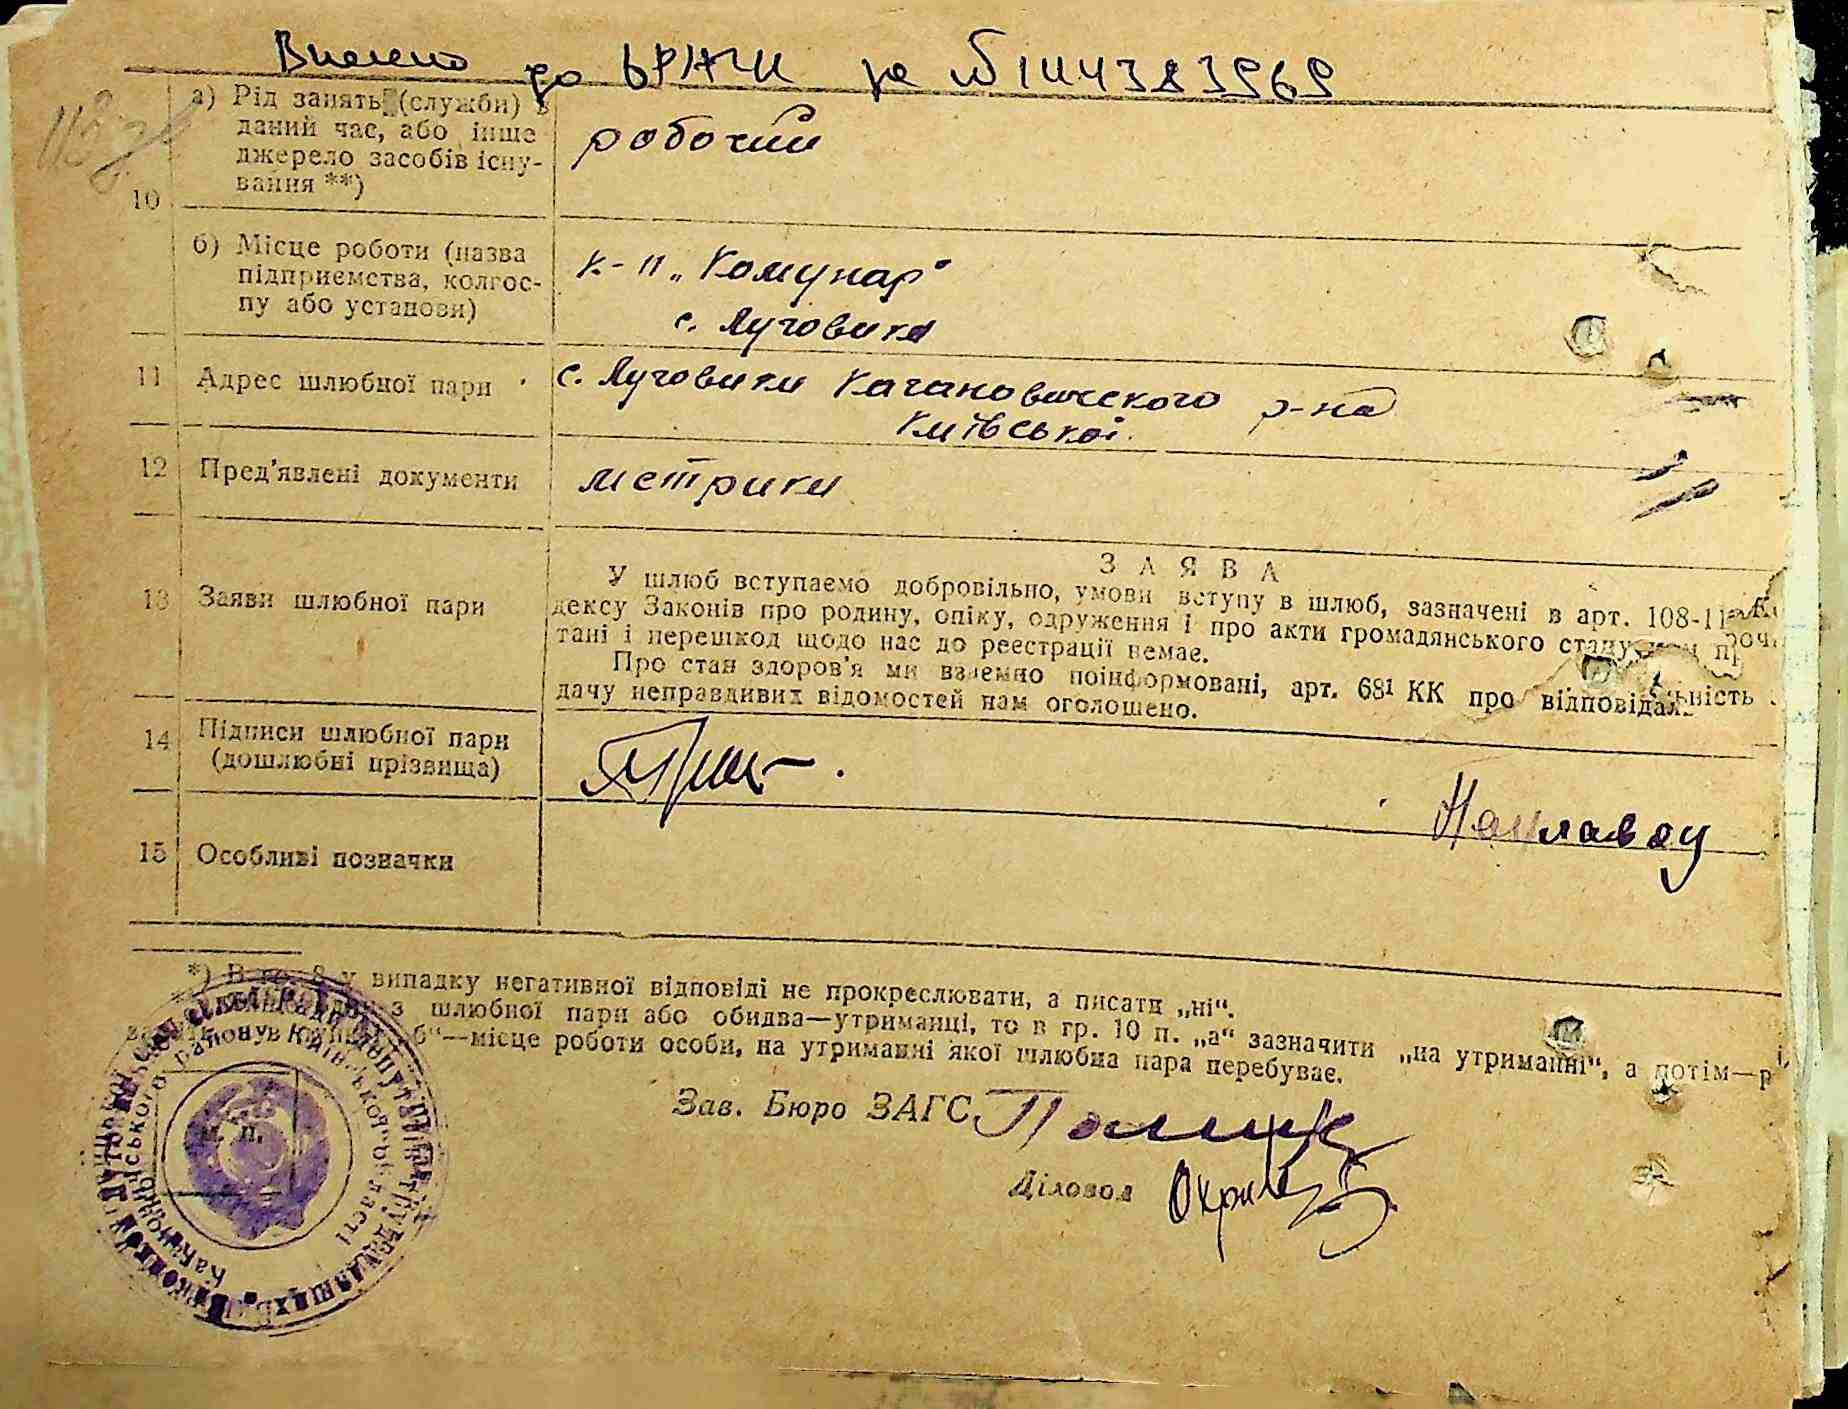 Внесено до ДРАЦС за №
10
а) Рід занять (служби) в
даний час, або інше
джерело засобів існу-
вання **)
робочий
б) Місце роботи (назва
підприємства, колгос-
пу або установи)
к-п „Комунар"
с. Луговики
11 Адрес шлюбної пари
с. Луговики Кагановичского р-на
Київської
12 Пред'явлені документи
метрики
13 Заяви шлюбної пари
ЗАЯВА
У шлюб вступаємо добровільно, умови вступу в шлюб, зазначені в арт. 108-11
дексу Законів про родину, опіку, одруження і про акти громадянського стану
тані і перешкод щодо нас до реєстрації немає.
Про стан здоров'я ми взаємно поінформовані, арт. 68¹ КК про відповідальність
дачу неправдивих відомостей нам оголошено.
14 Підписи шлюбної пари
(дошлюбні прізвища)
15 Особливі позначки
*) В гр. 8 у випадку негативної відповіді не прокреслювати, а писати „ні".
з шлюбної пари або обидва—утриманці, то в гр. 10 п. „а" зазначити „на утриманні", а потім—
б"—місце роботи особи, на утриманні якої шлюбна пара перебуває.
Зав. Бюро ЗАГС
Діловод
м. п.
районув Київської області
депутатів трудящих